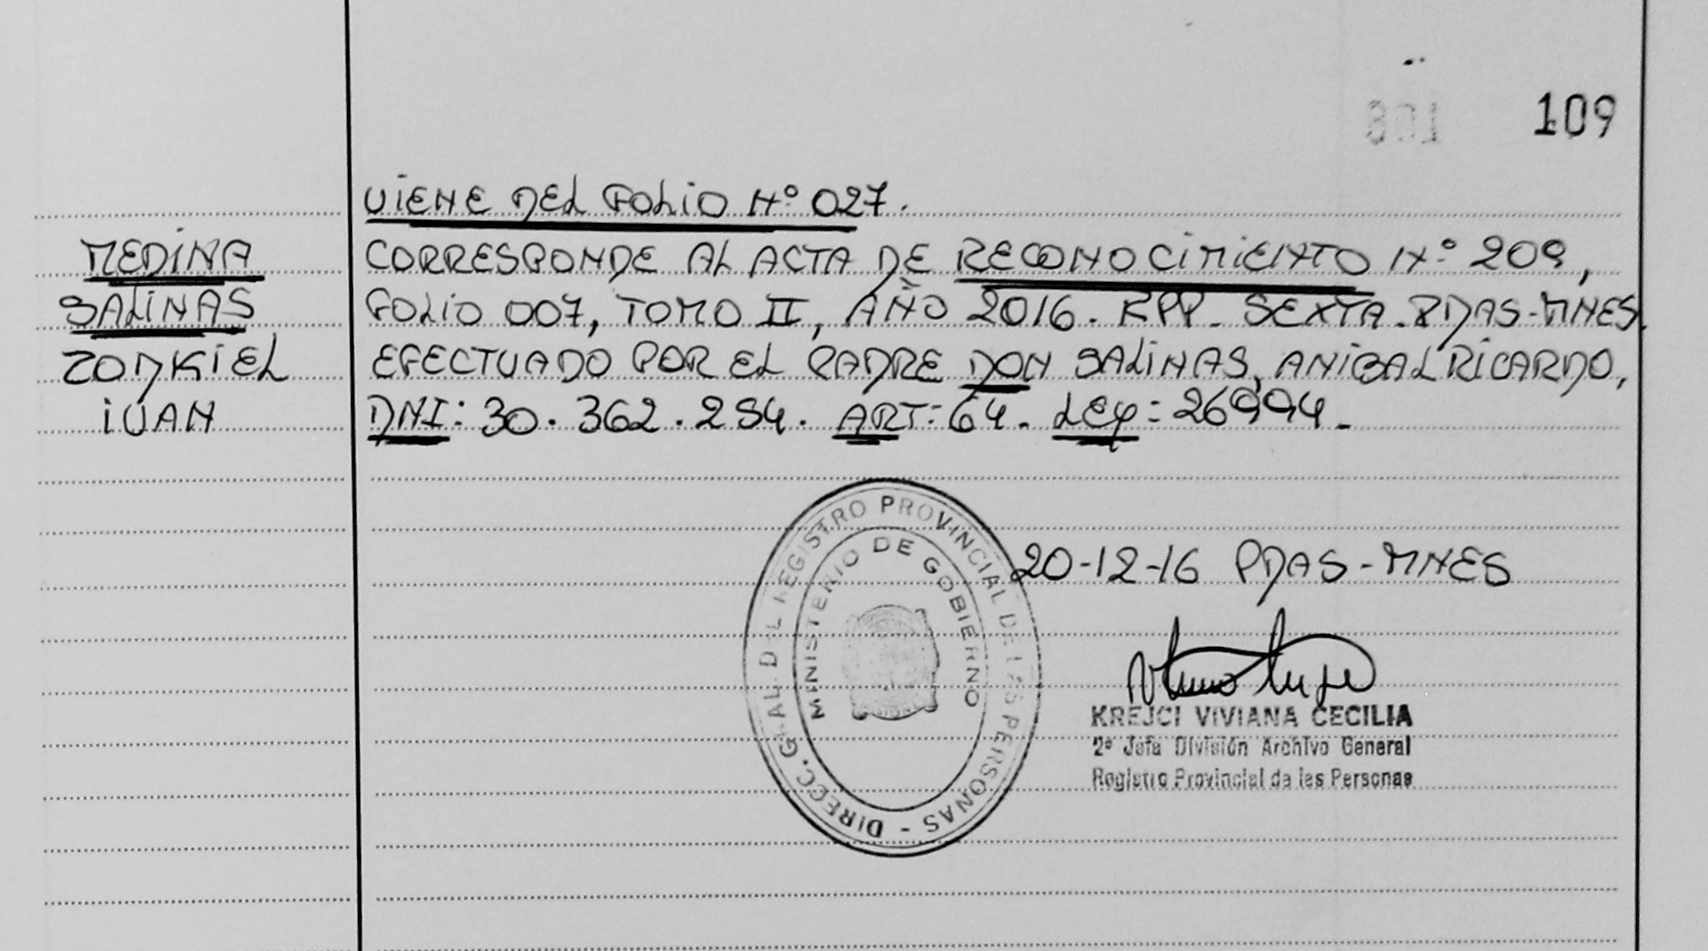 109
VIENE DEL FOLIO Nº 027.
MEDINA
SALINAS
ZODKIEL
IVAN
CORRESPONDE AL ACTA DE RECONOCIMIENTO Nº 209,
FOLIO 007, TOMO II, AÑO 2016. RPP. SEXTA. PDAS-MNES.
EFECTUADO POR EL PADRE DON SALINAS, ANIBAL RICARDO,
DNI: 30.362.254. ART: 64. LEY: 26994.-
DIRECC. GRAL. DEL REGISTRO PROVINCIAL DE LAS PERSONAS -
MINISTERIO DE GOBIERNO
MISIONES
20-12-16 PDAS-MNES
KREJCI VIVIANA CECILIA
2º Jefa División Archivo General
Registro Provincial de las Personas